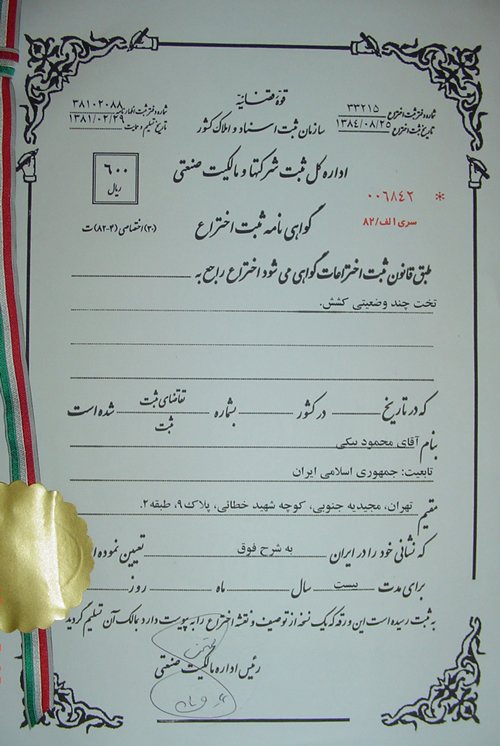 قوهٔ قضائیه
سازمان ثبت اسناد و املاک کشور
شماره دفتر ثبت اختراع ۳۳۲۱۵
تاریخ ثبت اختراع ۱۳۸۴/۰۸/۲۵
شماره دفتر ثبت اظهارنامه ۳۸۱۰۲۰۸۸
تاریخ تسلیم و حمایت ۱۳۸۱/۰۲/۲۹
اداره کل ثبت شرکتها و مالکیت صنعتی
۶۰۰
ریال
* ۰۰۶۸۴۲
سری ۱ الف/۸۲
گواهی نامه ثبت اختراع
(۳۰) اختصاصی (۴-۸۲) ت
طبق قانون ثبت اختراعات گواهی می شود اختراع راجع به
تخت چند وضعیتی کشش.
که در تاریخ در کشور بشماره تقاضای ثبت شده است
ثبت
بنام آقای محمود بیکی
تابعیت: جمهوری اسلامی ایران
مقیم تهران، مجیدیه جنوبی، کوچه شهید خطائی، پلاک ۹، طبقه ۲.
که نشانی خود را در ایران به شرح فوق تعیین نموده
برای مدت بیست سال ماه روز
به ثبت رسیده است این ورقه که یک نسخه از توصیف و نقشه اختراع را به پیوست دارد بمالک آن تسلیم گردید
رئیس اداره مالکیت صنعتی